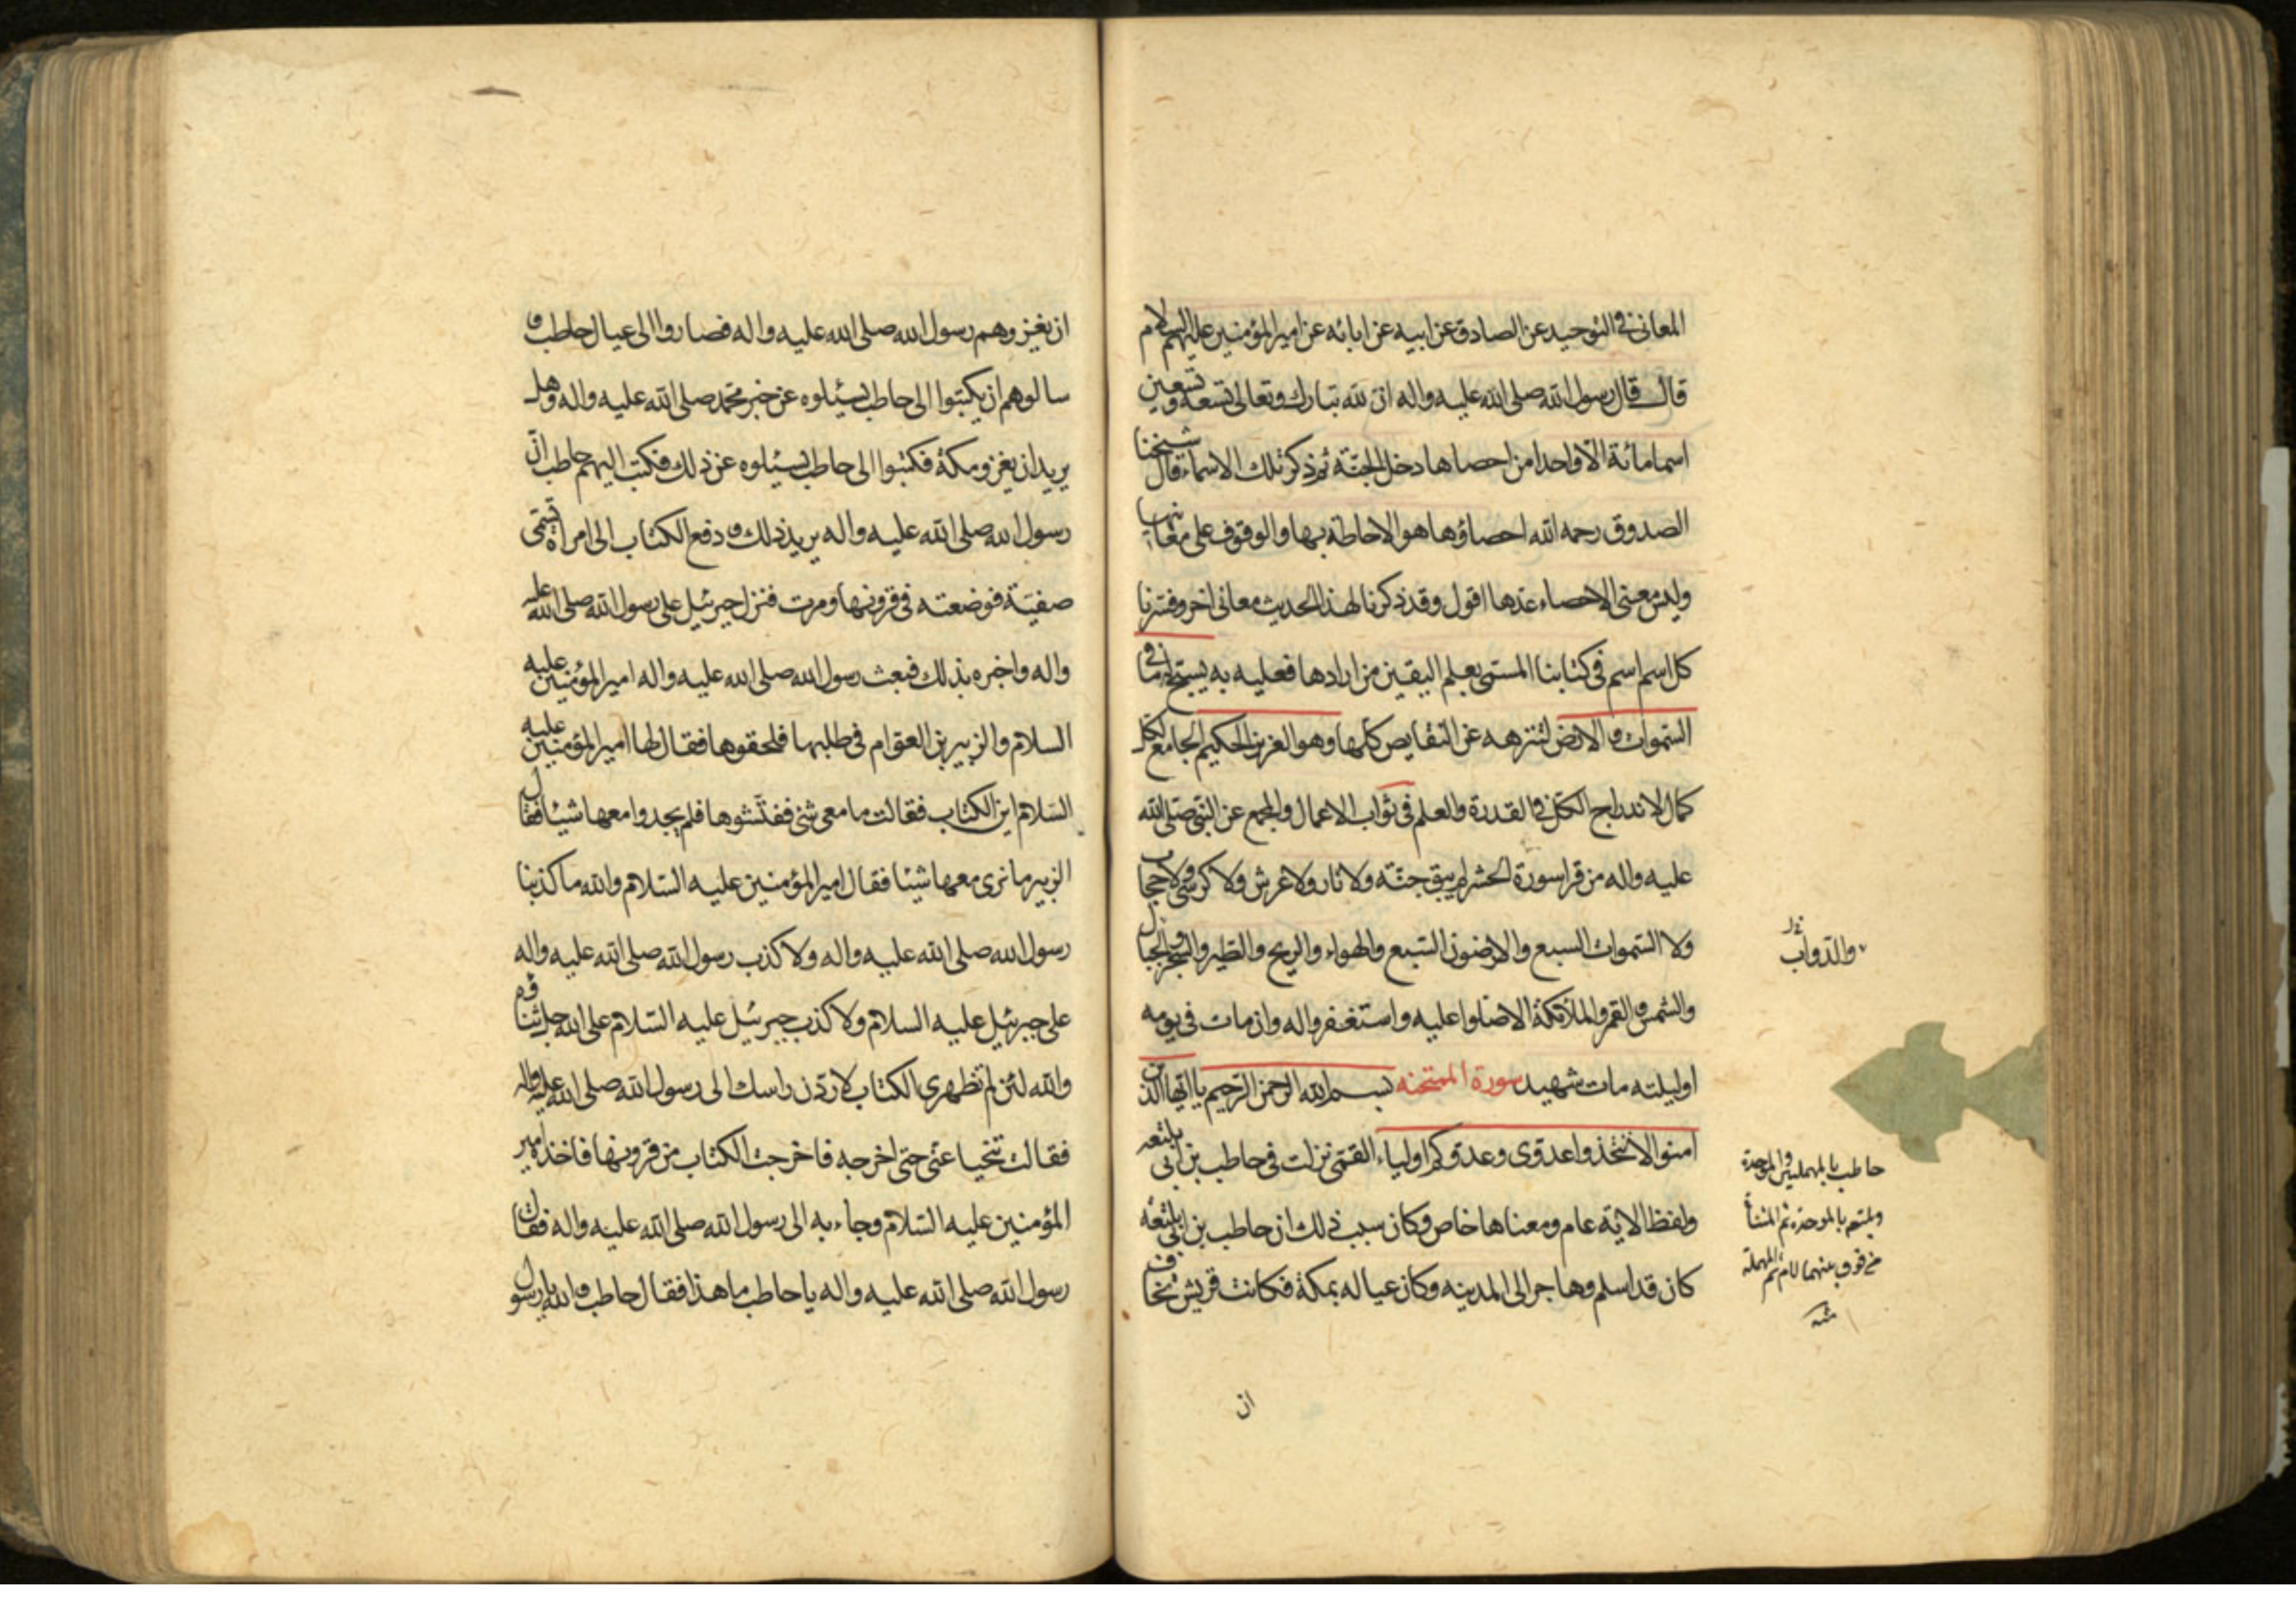 المعانی فی التوحید عن الصادق عن ابیه عن ابائه عن امیر المؤمنین علیهم السلام
قال قال رسول الله صلی الله علیه واله ان لله تبارک وتعالی تسعة وتسعین
اسما مائة الا واحدا من احصاها دخل الجنة ثم ذکر تلک الاسماء قال شیخنا
الصدوق رحمه الله احصاؤها هو الاحاطة بها والوقوف علی معانیها
ولیس معنی الاحصاء عدّها اقول وقد ذکرنا لهذا الحدیث معانی اخر وفسّرنا
کل اسم اسم فی کتابنا المسمّی بعلم الیقین من ارادها فعلیه به یسبح له ما فی
السّموات والارض لتنزهه عن النقایص کلها وهو العزیز الحکیم الجامع لکل
کمال لاندراج الکل فی القدرة والعلم فی ثواب الاعمال والمجمع عن النبی صلی الله
علیه واله من قرا سورة الحشر لم یبق جنّة ولا نار ولا عرش ولا کرسی ولا حجاب
ولا السّموات السبع والارضون السّبع والهواء والریح والطیر والشجر والجبال
والدّواب
والشمس والقمر والملائکة الا صلوا علیه واستغفروا له وان مات فی یومه
او لیلته مات شهید سورة الممتحنه بسم الله الرحمن الرّحیم یا ایها الذین
امنوا لا تتخذوا عدوی وعدوکم اولیاء القمّی نزلت فی حاطب بن ابی بلتعه
ولفظ الایة عام ومعناها خاص وکان سبب ذلک ان حاطب بن ابی بلتعه
کان قد اسلم وهاجر الی المدینه وکان عیاله بمکة فکانت قریش تخاف
حاطب بالمهملتین والموحدة
وبلتعه بالموحدة ثم المثناة
من فوق بینهما لام ثم المهملة
منه
ان
ان یغزوهم رسول الله صلی الله علیه واله فصاروا الی عیال حاطب و
سالوهم ان یکتبوا الی حاطب یسئلوه عن خبر محمّد صلی الله علیه واله وهل
یرید ان یغزو مکة فکتبوا الی حاطب یسئلوه عن ذلک فکتب الیهم حاطب انّ
رسول الله صلی الله علیه واله یرید ذلک و دفع الکتاب الی امراة تسمّی
صفیّة فوضعته فی قرونها ومرت فنزل جبرئیل علی رسول الله صلی الله علیه
واله واخبره بذلک فبعث رسول الله صلی الله علیه واله امیر المؤمنین علیه
السلام والزبیر بن العوّام فی طلبها فلحقوها فقال لها امیر المؤمنین علیه
السّلام این الکتاب فقالت ما معی شئ ففتّشوها فلم یجدوا معها شیئا فقال
الزبیر ما نری معها شیئا فقال امیر المؤمنین علیه السّلام والله ما کذبنا
رسول الله صلی الله علیه واله ولا کذب رسول الله صلی الله علیه واله
علی جبرئیل علیه السلام ولا کذب جبرئیل علیه السّلام علی الله جل ثناؤه
والله لئن لم تظهری الکتاب لاردّن راسک الی رسول الله صلی الله علیه واله
فقالت تنحیا عنّی حتی اخرجه فاخرجت الکتاب من قرونها فاخذه امیر
المؤمنین علیه السّلام وجاء به الی رسول الله صلی الله علیه واله فقال
رسول الله صلی الله علیه واله یا حاطب ما هذا فقال حاطب والله یا رسول